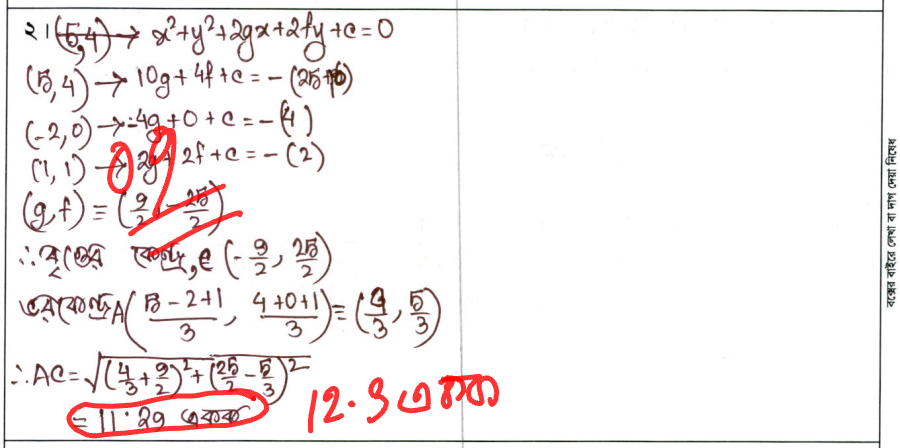 ২১। (5,4) → x²+y²+2gx+2fy+c=0
(5,4) → 10g+4f+c = -(25+16)
(-2,0) → -4g+0+c = -(4)
(1,1) → 2g+2f+c = -(2)
09
(g,f) ≡ (9/2, -25/2)
∴ বৃত্তের কেন্দ্র, C (-9/2, 25/2)
ভরকেন্দ্র A((5-2+1)/3, (4+0+1)/3) ≡ (4/3, 5/3)
∴ AC = √((4/3+9/2)²+(25/2-5/3)²)
= 11.29 একক
12.3 একক
বক্সের বাইরে লেখা বা দাগ দেয়া নিষেধ